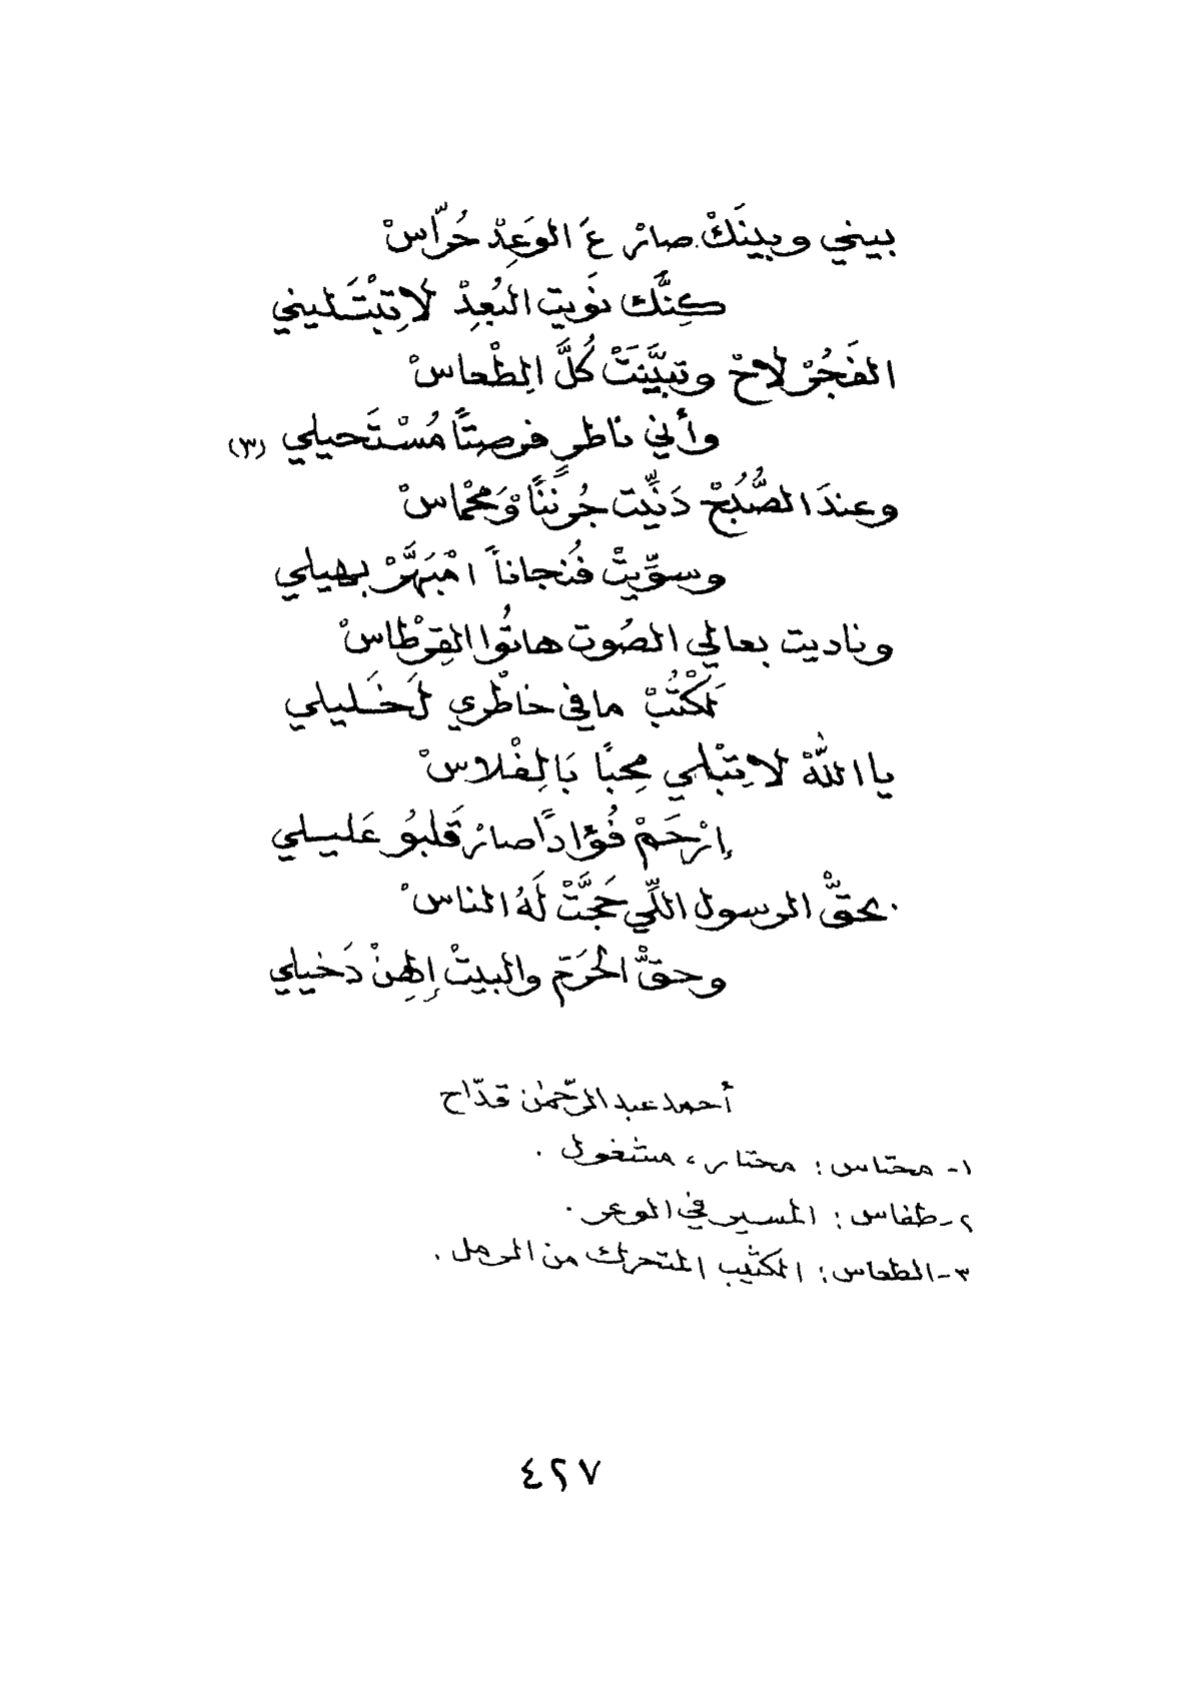 بيني وبينَكْ صارْ عَ الوَعِدْ حُرّاسْ
كِنَّك نَويت البُعِدْ لا تِبْتَليني
الفَجُرْ لاحْ وتبيَّنَتْ كُلَّ الِطْعاسْ
وأني ناطر فرصتاً مُسْتَحيلي (٣)
وعندَ الصُّبُحْ دَنِّيت جُرُنناً وْمَحْماسْ
وسوِّيتْ فُنجاناً امْبَهَّرْ بهيلي
وناديت بعالي الصُوت هاتُوا القِرْطاسْ
تَكْتُبْ مافي خاطْري لَخَليلي
يا اللهْ لا تِبْلي مِحِباً بَالِفْلاسْ
إرْحَمْ فُؤاداً صارْ قَلبوُ عَليلي
بحقِّ الرسول اللّي حَجَّتْ لَهُ الناسْ
وحقِّ الحُرَمْ والبيتْ إلهِنْ دَخيلي
أحمد عبد الرّحمن قدّاح
١- محتاس: محتار، مشغول.
٢- طفاس: المسير في الوعر.
٣- الطعاس: الكثيب المتحرك من الرمل.
٤٢٧